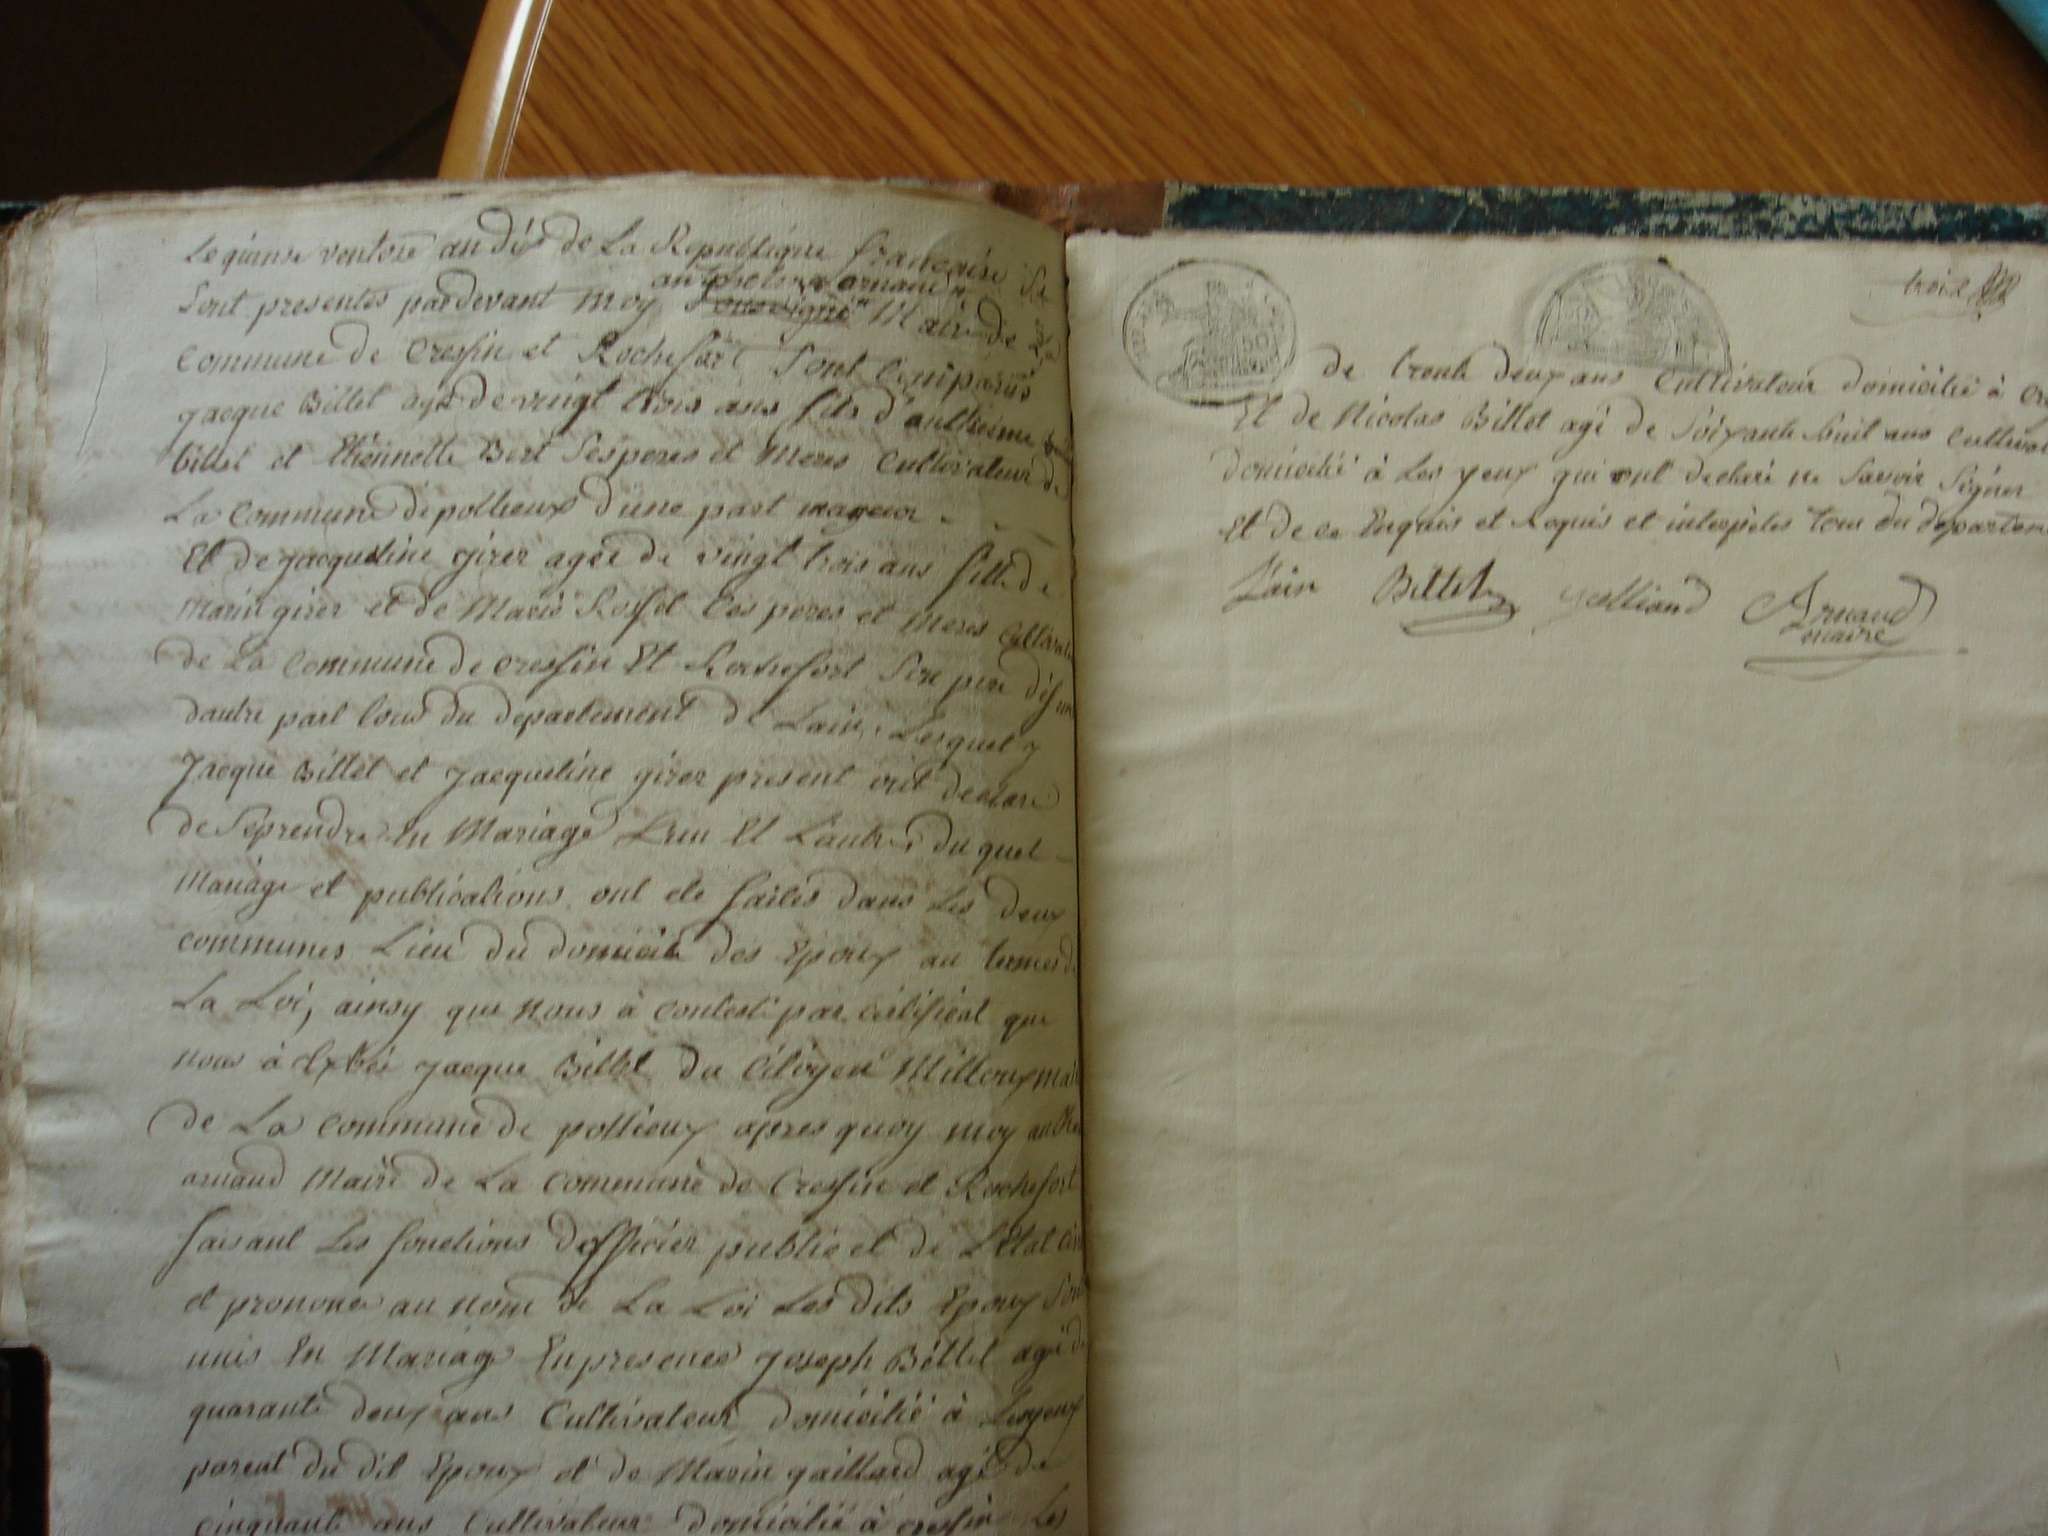 Le quinse ventose an dis de La Republique francaise Se
Sont presentes pardevant moy Sousigné Maire de
commune de Cressin et Rochefort sont Comparus
Jacque Billet agé de vingt trois ans fils d'anthesme
billet et Etiennette Bert Sesperes et Meres Cultivateur de
La Commune de pollieux d'une part mageur
Et de Jacqueline girer agée de vingt trois ans fille de
Marin girer et de Marie Rosset Ces peres et meres Cultivate
de La Commune de Cressin Et Rochefort Son pere
dautre part tous du departement de Lain. Lesquel
Jacque Billet et Jacqueline girer present ont declare
de Seprendre En Mariage Lun Et Lautre, du quel
Mariage et publications ont ete faites dans Les deux
communes Lieu du domicile des Epoux au termes de
La Loi, ainsy que nous à Contesté par certificat que
nous à Jacque Billet du Citoyen Millouxmaire
de La commune de pollieux apres quoy moy
arnaud Maire de La Commune de Cressin et Rochefort
faisant Les fonctions dofficier public et de L'Etat civi
et prononcé au nom de La Loi Les dits Epoux Son
unis En Mariage Enpresence Joseph Béllet agé de
quarante deux ans Cultivateur domicilié à Lesyeux
parent du dit Epoux et de Marin gaillard agé de
cinquante ans Cultivateur domicilié à cressin Les
troix
50
de trente deux ans Cultivateur domicilié à Cre
Et de Nicolas Billet agé de Soixante huit ans Cultivat
domicilié à Les yeux qui ont declaré ne Savoir Signer
Et de ce Enquis et Requis et interpeles tous du departem
Lain Billet Arnaud
maire